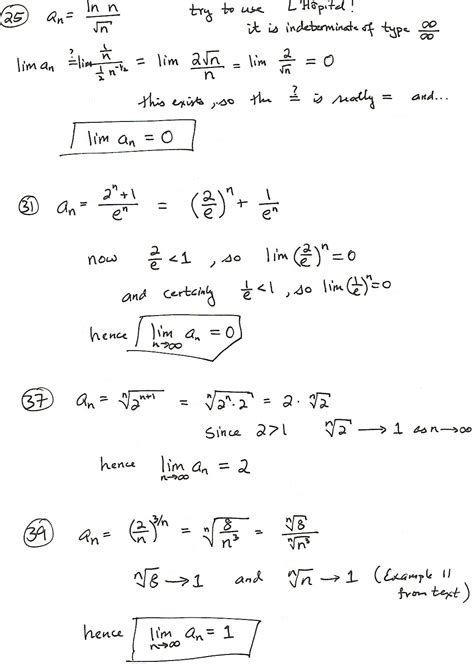 25 aₙ = ln n / √n try to use L'Hôpital!
it is indeterminate of type ∞/∞
lim aₙ ≟ lim (1/n) / (½ n^(-1/2)) = lim 2√n / n = lim 2/√n = 0
this exists, so the ≟ is really = and...
lim aₙ = 0
31 aₙ = (2ⁿ+1) / eⁿ = (2/e)ⁿ + 1/eⁿ
now 2/e < 1, so lim (2/e)ⁿ = 0
and certainly 1/e < 1, so lim (1/e)ⁿ = 0
hence lim n→∞ aₙ = 0
37 aₙ = ⁿ√(2ⁿ⁺¹) = ⁿ√(2ⁿ·2) = 2 · ⁿ√2
Since 2>1 ⁿ√2 → 1 as n→∞
hence lim n→∞ aₙ = 2
39 aₙ = (2/n)^(3/n) = ⁿ√(8/n³) = ⁿ√8 / ⁿ√n³
ⁿ√8 → 1 and ⁿ√n → 1 (Example 11
from text)
hence lim n→∞ aₙ = 1